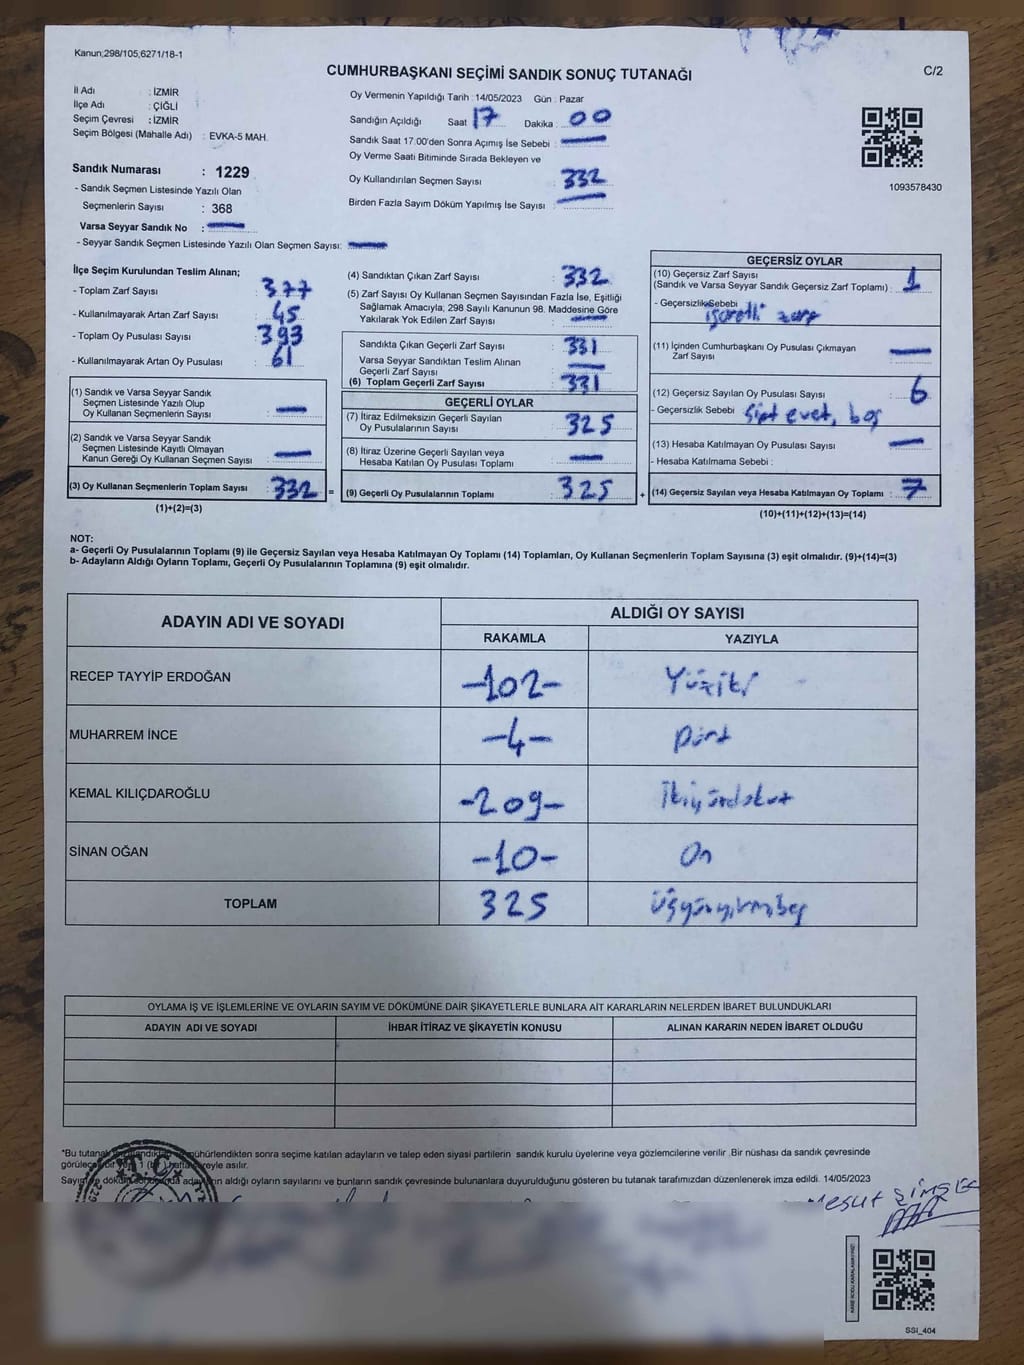 Kanun;298/105,6271/18-1
CUMHURBAŞKANI SEÇİMİ SANDIK SONUÇ TUTANAĞI
C/2
İl Adı : İZMİR
İlçe Adı : ÇİĞLİ
Seçim Çevresi : İZMİR
Seçim Bölgesi (Mahalle Adı) : EVKA-5 MAH.
Sandık Numarası : 1229
- Sandık Seçmen Listesinde Yazılı Olan
Seçmenlerin Sayısı : 368
Varsa Seyyar Sandık No :
- Seyyar Sandık Seçmen Listesinde Yazılı Olan Seçmen Sayısı:
Oy Vermenin Yapıldığı Tarih : 14/05/2023 Gün : Pazar
Sandığın Açıldığı Saat 17 Dakika : 00
Sandık Saat 17:00'den Sonra Açımış İse Sebebi :
Oy Verme Saati Bitiminde Sırada Bekleyen ve
Oy Kullandırılan Seçmen Sayısı : 332
Birden Fazla Sayım Döküm Yapılmış İse Sayısı :
1093578430
İlçe Seçim Kurulundan Teslim Alınan;
- Toplam Zarf Sayısı : 377
- Kullanılmayarak Artan Zarf Sayısı : 45
- Toplam Oy Pusulası Sayısı : 393
- Kullanılmayarak Artan Oy Pusulası : 61
(1) Sandık ve Varsa Seyyar Sandık
Seçmen Listesinde Yazılı Olup
Oy Kullanan Seçmenlerin Sayısı :
(2) Sandık ve Varsa Seyyar Sandık
Seçmen Listesinde Kayıtlı Olmayan
Kanun Gereği Oy Kullanan Seçmen Sayısı :
(3) Oy Kullanan Seçmenlerin Toplam Sayısı : 332 =
(1)+(2)=(3)
(4) Sandıktan Çıkan Zarf Sayısı : 332
(5) Zarf Sayısı Oy Kullanan Seçmen Sayısından Fazla İse, Eşitliği
Sağlamak Amacıyla; 298 Sayılı Kanunun 98. Maddesine Göre
Yakılarak Yok Edilen Zarf Sayısı :
Sandıkta Çıkan Geçerli Zarf Sayısı : 331
Varsa Seyyar Sandıktan Teslim Alınan
Geçerli Zarf Sayısı :
(6) Toplam Geçerli Zarf Sayısı : 331
GEÇERLİ OYLAR
(7) İtiraz Edilmeksizin Geçerli Sayılan
Oy Pusulalarının Sayısı : 325
(8) İtiraz Üzerine Geçerli Sayılan veya
Hesaba Katılan Oy Pusulası Toplamı :
(9) Geçerli Oy Pusulalarının Toplamı : 325 +
GEÇERSİZ OYLAR
(10) Geçersiz Zarf Sayısı
(Sandık ve Varsa Seyyar Sandık Geçersiz Zarf Toplamı) : 1
- Geçersizlik Sebebi : işaretli zarf
(11) İçinden Cumhurbaşkanı Oy Pusulası Çıkmayan
Zarf Sayısı :
(12) Geçersiz Sayılan Oy Pusulası Sayısı : 6
- Geçersizlik Sebebi : evet, boş
(13) Hesaba Katılmayan Oy Pusulası Sayısı :
- Hesaba Katılmama Sebebi :
(14) Geçersiz Sayılan veya Hesaba Katılmayan Oy Toplamı : 7
(10)+(11)+(12)+(13)=(14)
NOT:
a- Geçerli Oy Pusulalarının Toplamı (9) ile Geçersiz Sayılan veya Hesaba Katılmayan Oy Toplamı (14) Toplamları, Oy Kullanan Seçmenlerin Toplam Sayısına (3) eşit olmalıdır. (9)+(14)=(3)
b- Adayların Aldığı Oyların Toplamı, Geçerli Oy Pusulalarının Toplamına (9) eşit olmalıdır.
ADAYIN ADI VE SOYADI ALDIĞI OY SAYISI
RAKAMLA YAZIYLA
RECEP TAYYİP ERDOĞAN -102- Yüziki
MUHARREM İNCE -4- Dört
KEMAL KILIÇDAROĞLU -209- İkiyüzdokuz
SİNAN OĞAN -10- On
TOPLAM 325 Üçyüzyirmibeş
OYLAMA İŞ VE İŞLEMLERİNE VE OYLARIN SAYIM VE DÖKÜMÜNE DAİR ŞİKAYETLERLE BUNLARA AİT KARARLARIN NELERDEN İBARET BULUNDUKLARI
ADAYIN ADI VE SOYADI İHBAR İTİRAZ VE ŞİKAYETİN KONUSU ALINAN KARARIN NEDEN İBARET OLDUĞU
*Bu tutanak mühürlendikten sonra seçime katılan adayların ve talep eden siyasi partilerin sandık kurulu üyelerine veya gözlemcilerine verilir .Bir nüshası da sandık çevresinde
görülecek bir yere 1 (bir) hafta süreyle asılır.
Sayım ve döküm sonunda adayların aldığı oyların sayılarını ve bunların sandık çevresinde bulunanlara duyurulduğunu gösteren bu tutanak tarafımızdan düzenlenerek imza edildi. 14/05/2023
T.C.
Mesut ŞİMŞEK
SSI_404